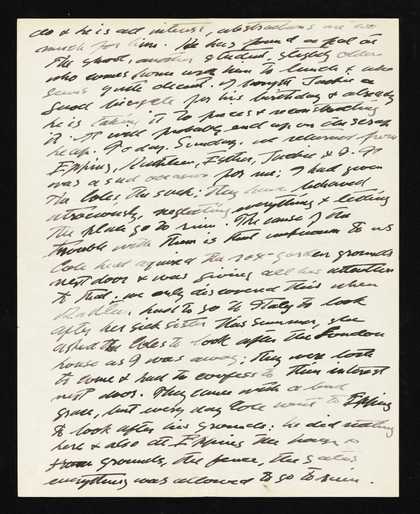 do & he is all interest, abstractions are too
much for him. He has found a pal in
the school, another student, slightly older
who comes home with him to lunch & who
seems quite decent. I bought Jackie a
small bicycle for his birthday & already
he is taking it to pieces & reconstructing
it. It will probably end up on the scrap
heap. Today, Sunday, we returned from
Epping, Kathleen, Esther, Jackie & I. It
was a sad occasion for me; I had given
the Coles the sack; they have behaved
atrociously, neglecting everything & letting
the place go to ruin. The cause of the
trouble with them is that unknown to us
Cole had acquired the garden grounds
next door & was giving all his attention
to that; we only discovered this when
had to go to Italy to look
after her sick sister this summer, she
asked the Coles to look after the London
house as I was away; they were loth
to come & had to confess to their interest
next door. They came with a bad
grace, but every day Cole went to Epping
to look after his grounds; he did nothing
here & also at Epping the house &
grounds, the fence, the gates
everything was allowed to go to ruin.